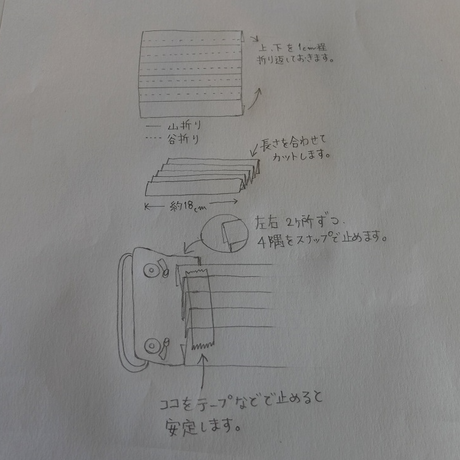 上、下を1cm程
折り返しておきます。
山折り
谷折り
長さを合わせて
カットします。
約18cm
左右2ヶ所ずつ、
4隅をスナップで止めます。
ココをテープなどで止めると
安定します。